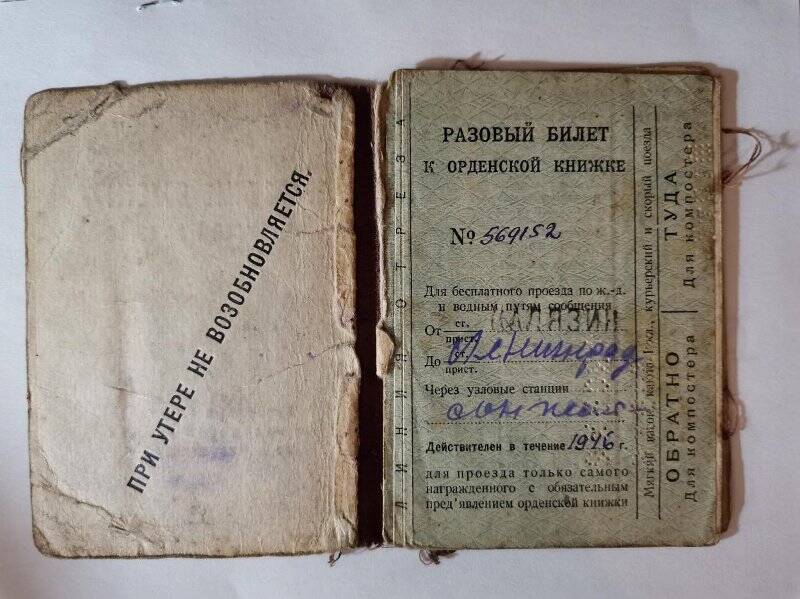 ПРИ УТЕРЕ НЕ ВОЗОБНОВЛЯЕТСЯ.
ЛИНИЯ ОТРЕЗА
РАЗОВЫЙ БИЛЕТ
К ОРДЕНСКОЙ КНИЖКЕ
№ 569152
Для бесплатного проезда по ж.-д.
и водным путям сообщения
От ст.
прист.
До ст. Ленинград
прист.
Через узловые станции
Действителен в течение 1946 г.
для проезда только самого
награжденного с обязательным
пред'явлением орденской книжки
Мягкий вагон, каюта I кл., курьерский и скорый поезда
ОБРАТНО
Для компостера
ТУДА
Для компостера